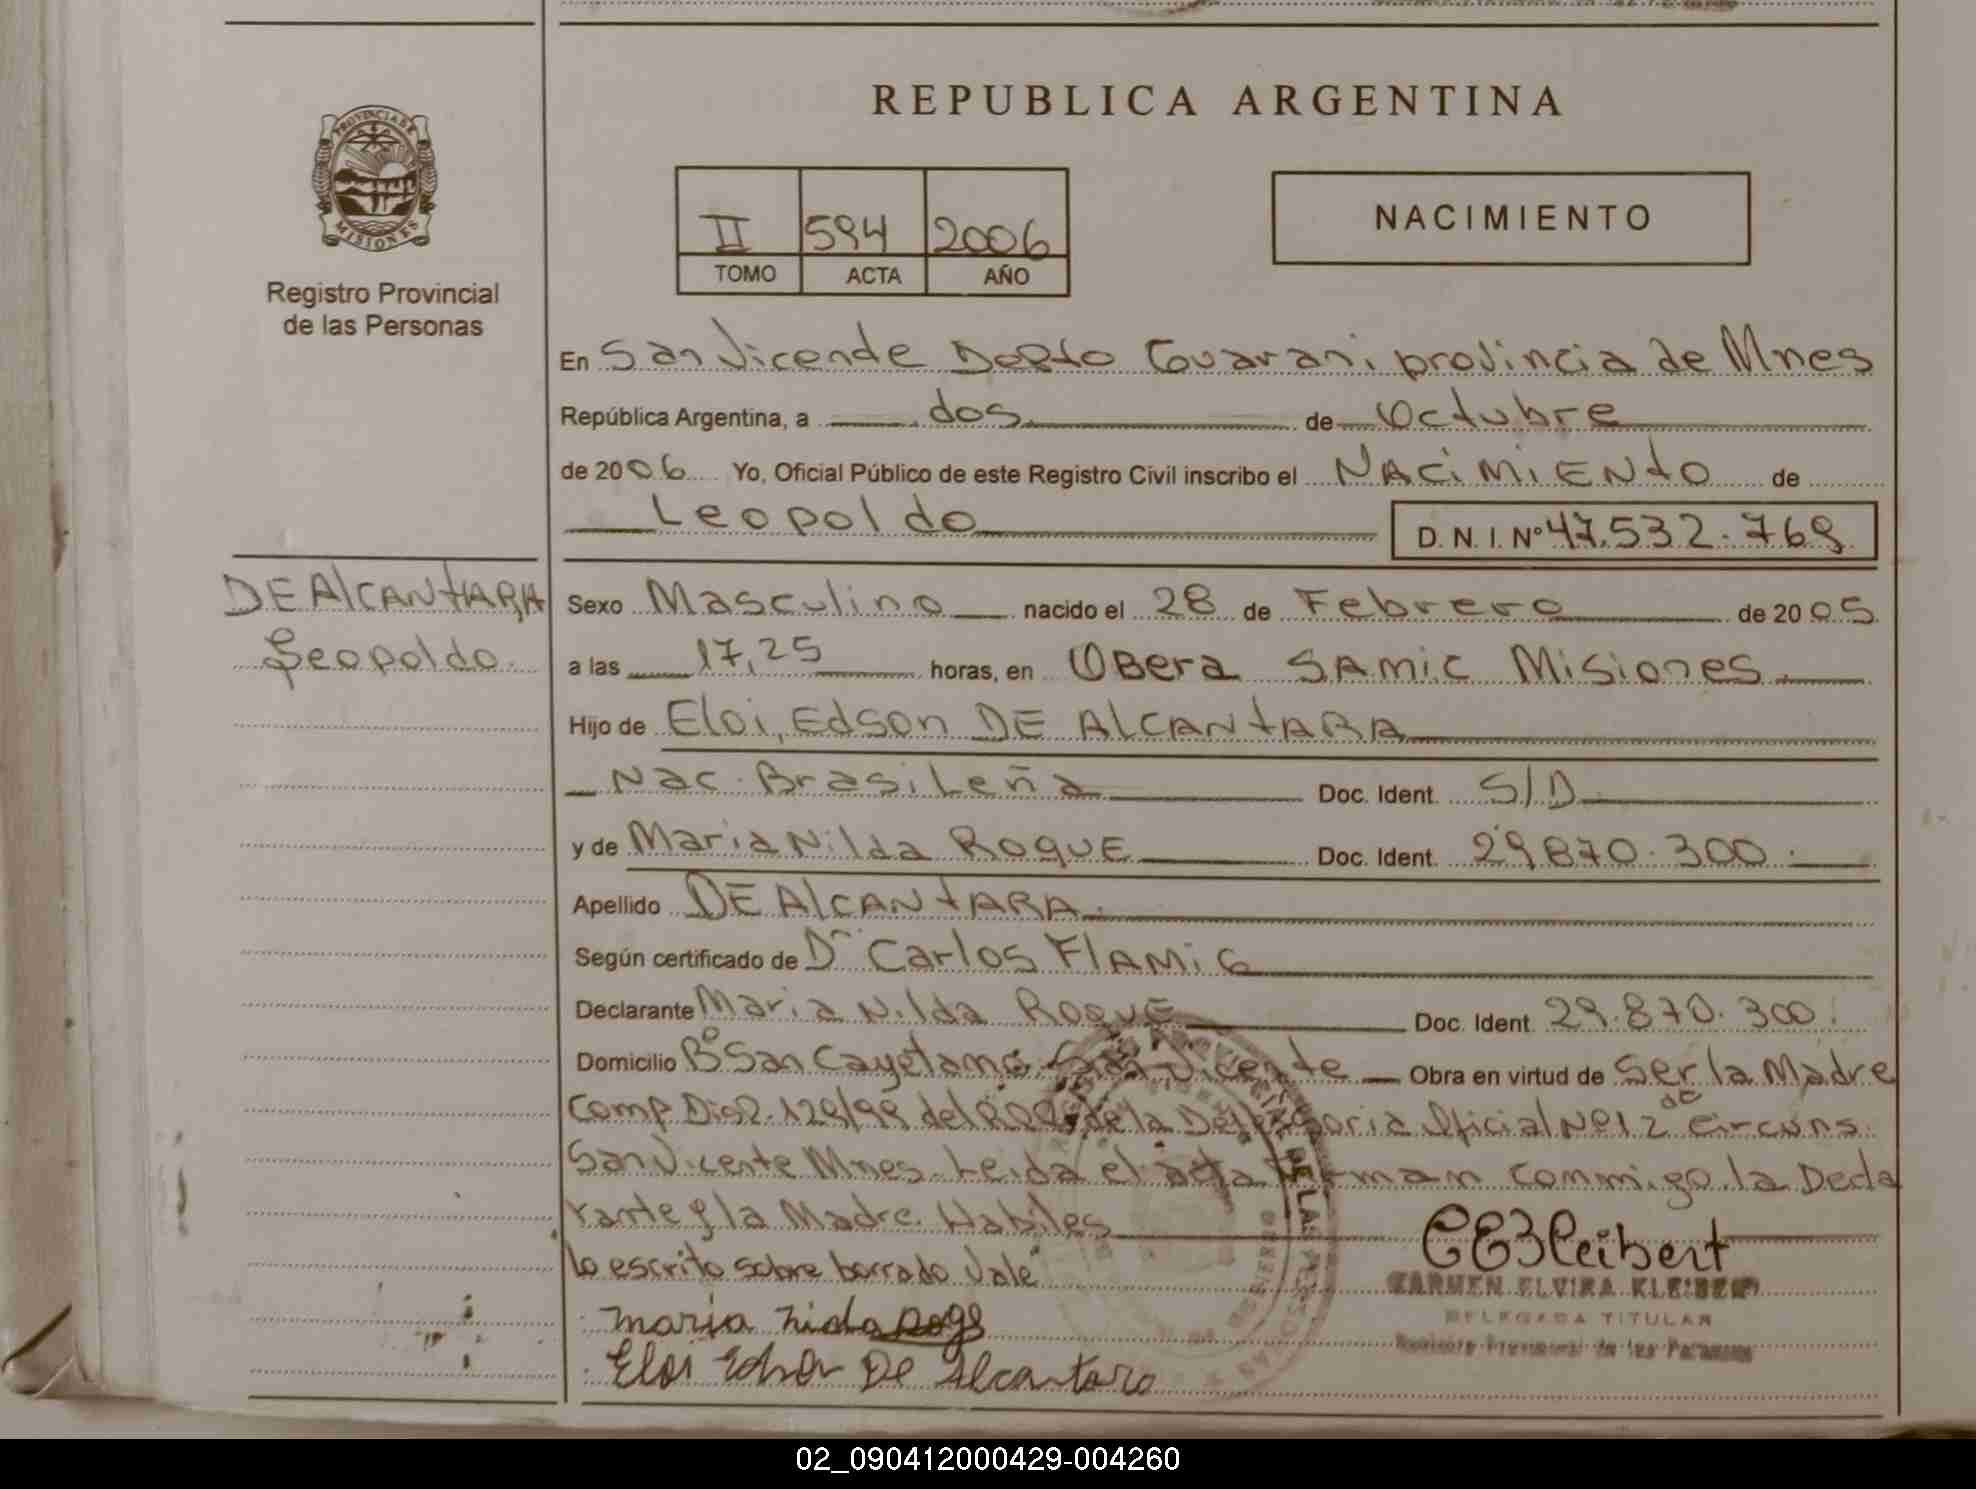 REPUBLICA ARGENTINA
PROVINCIA DE
MISIONES
Registro Provincial
de las Personas
II 594 2006
TOMO ACTA AÑO
NACIMIENTO
En San Vicende Depto Guarani provincia de Mnes
República Argentina, a dos de Octubre
de 2006 Yo, Oficial Público de este Registro Civil inscribo el NACIMIENTO de
Leopoldo
D. N. I. Nº 47.532.769
DE AlCANTARA
Leopoldo
Sexo Masculino nacido el 28 de Febrero de 2005
a las 17,25 horas, en OBera SAMIC Misiones
Hijo de Eloi, Edson DE AlCANTARA
Nac. Brasileña Doc. Ident. S/D
y de Maria Nilda ROQUE Doc. Ident. 29.870.300.
Apellido DE AlCANTARA
Según certificado de Dr Carlos FlAMiG
Declarante Maria Nilda ROQUE Doc. Ident. 29.870.300.
Domicilio Bº San Cayetano San Vicente Obra en virtud de Ser la Madre
Comp. Disp. 129/99 del de la Defensoria Oficial Nº 1 2 de Circuns.
San Vicente Mnes. Leida el acta Firman Conmigo la Decla
rante y la Madre. Habiles
lo escrito sobre borrado Vale
CEKleibert
CARMEN ELVIRA KLEIBERT
DELEGADA TITULAR
Registro Provincial de las Personas
maria nida
Eloi Edson De Alcantara
02_090412000429-004260